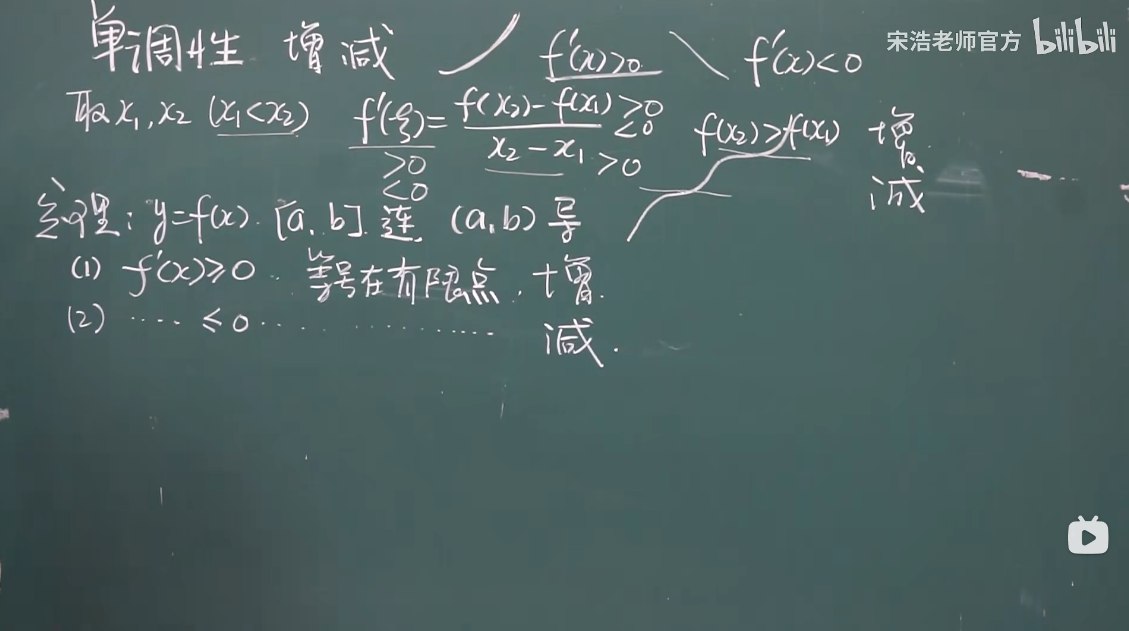 单调性 增减 f'(x)>0 f'(x)<0
宋浩老师官方 bilibili
取x₁,x₂ (x₁<x₂) f'(ξ)= f(x₂)-f(x₁) >0 <0
x₂-x₁ >0
>0
<0
f(x₂)>f(x₁) 增
减
定理: y=f(x). [a,b]连 (a,b)导
(1) f'(x)≥0 .. 等号在有限点. 增.
(2) .... ≤0 ................ 减.